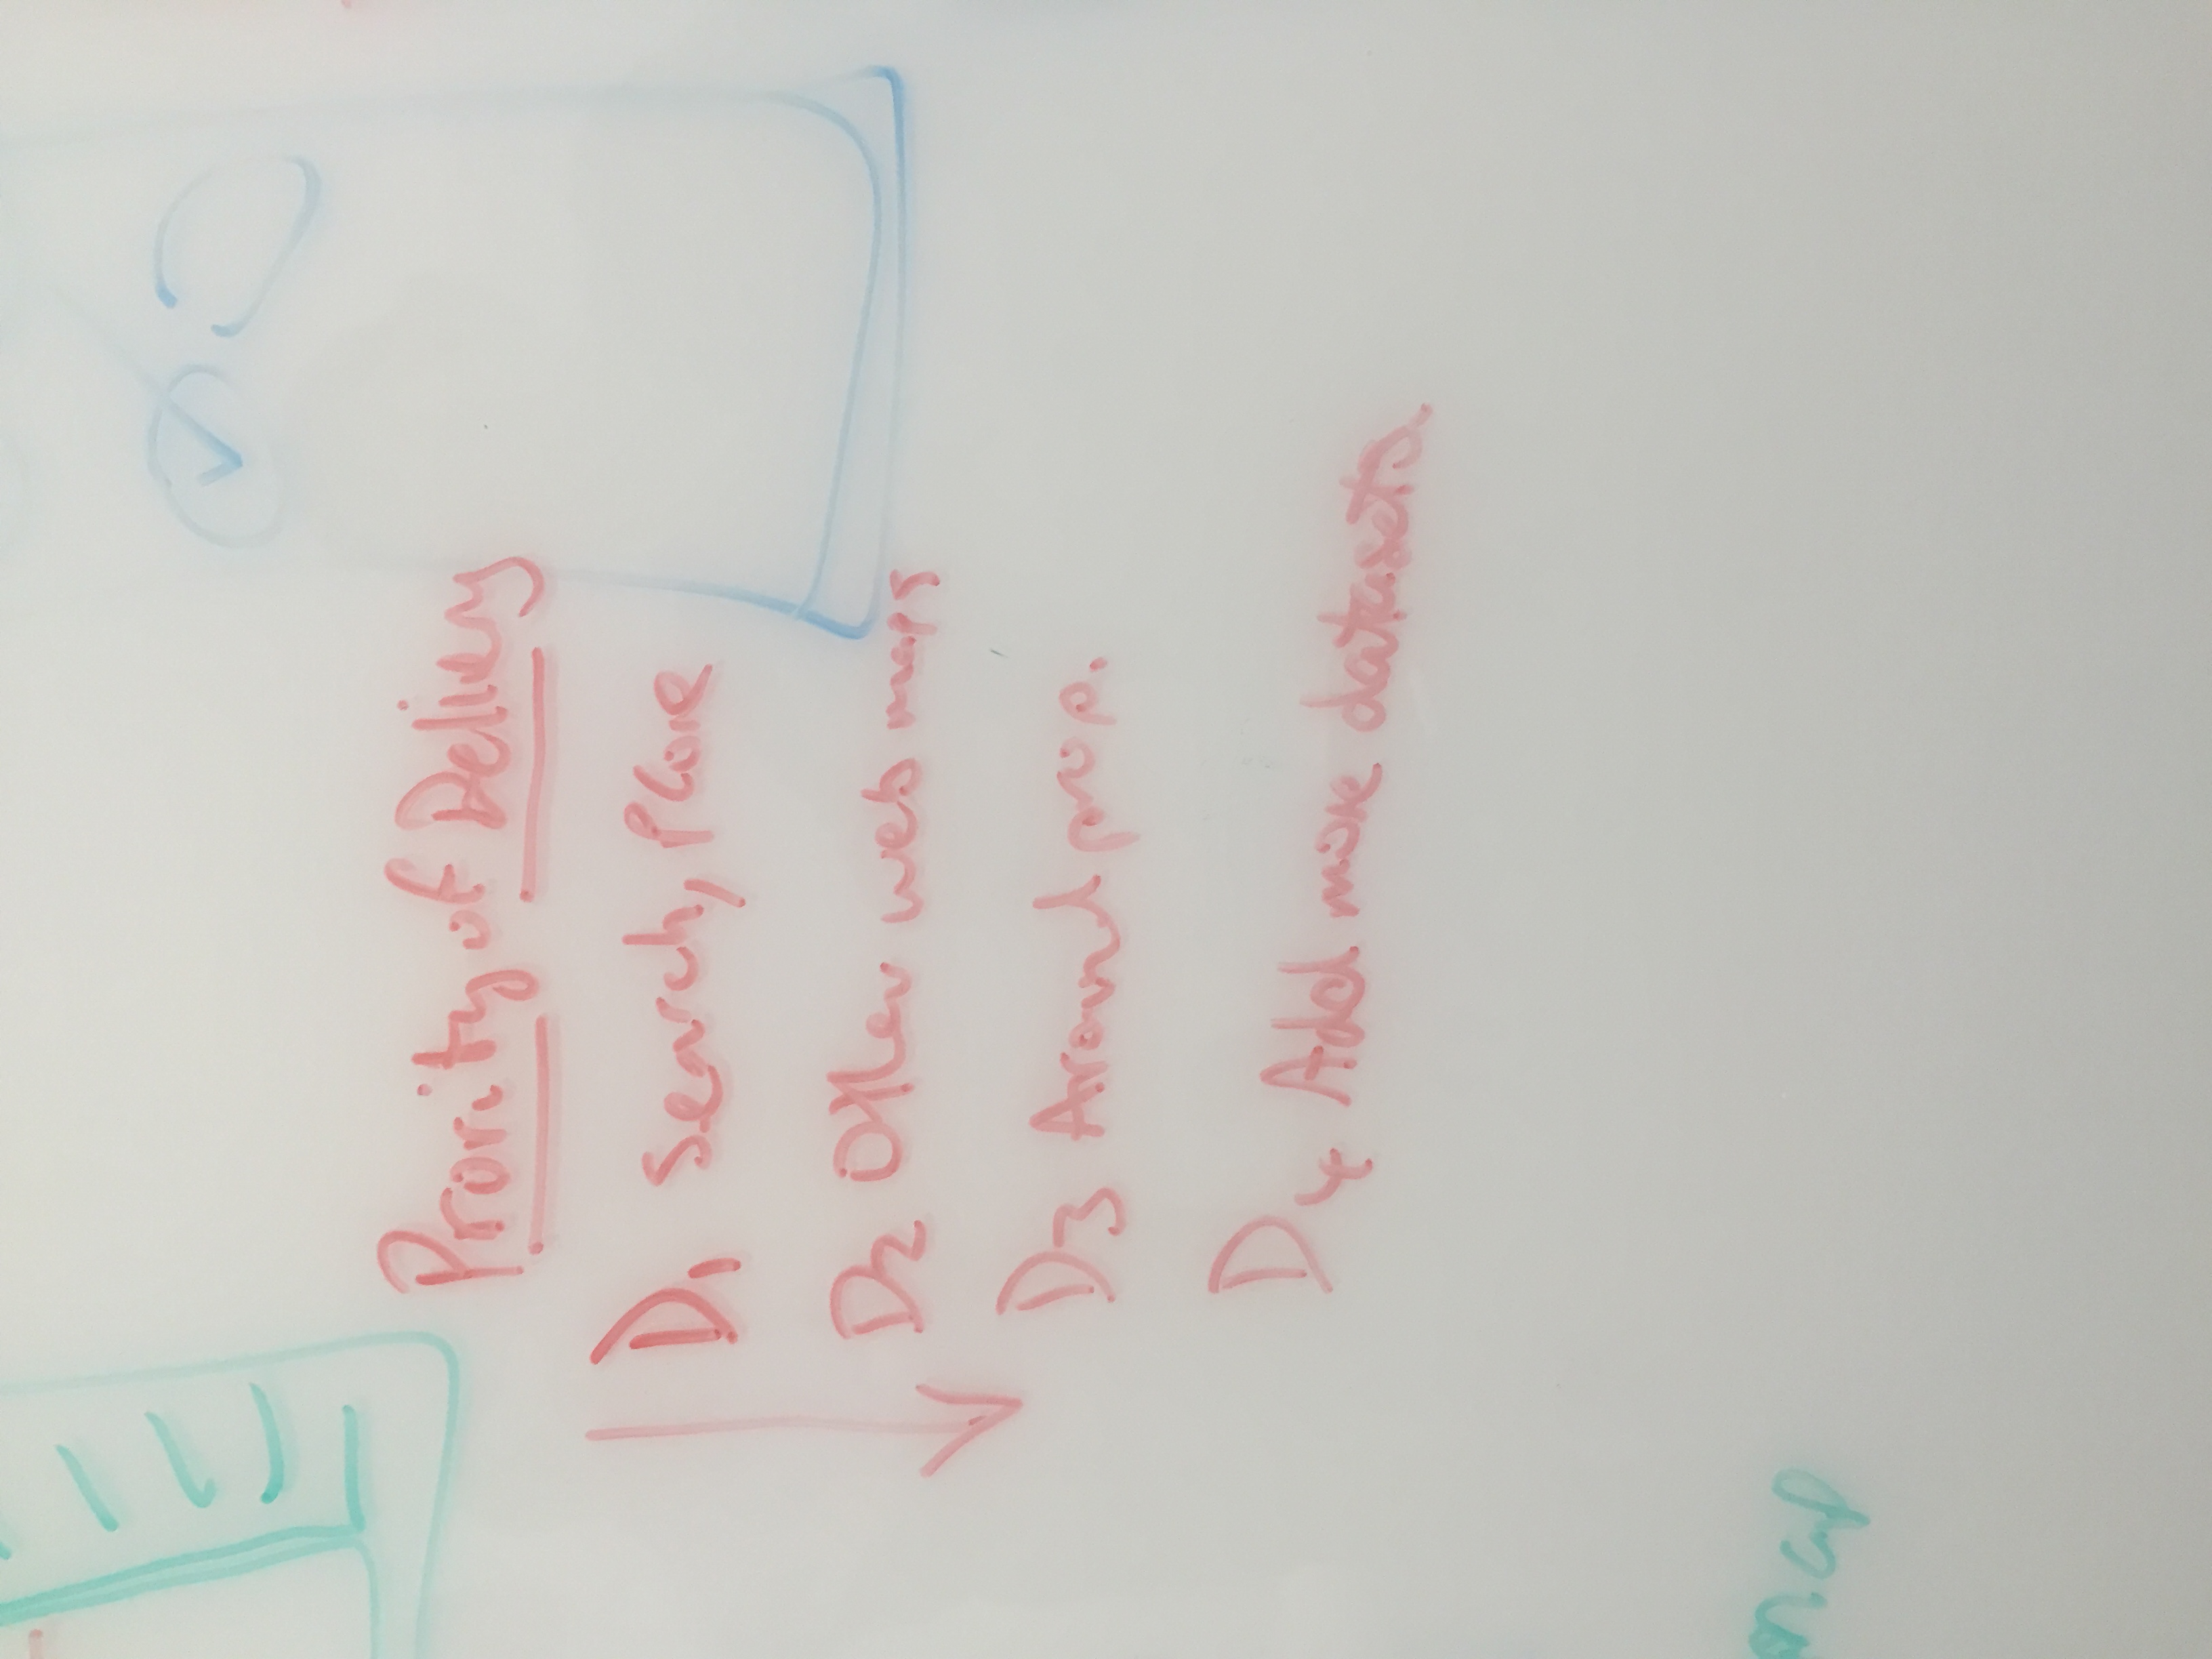 Prority of Delivery
D1 Search, PCore
D2 Other web maps
D3 Around prop.
D4 Add more datasets.
map